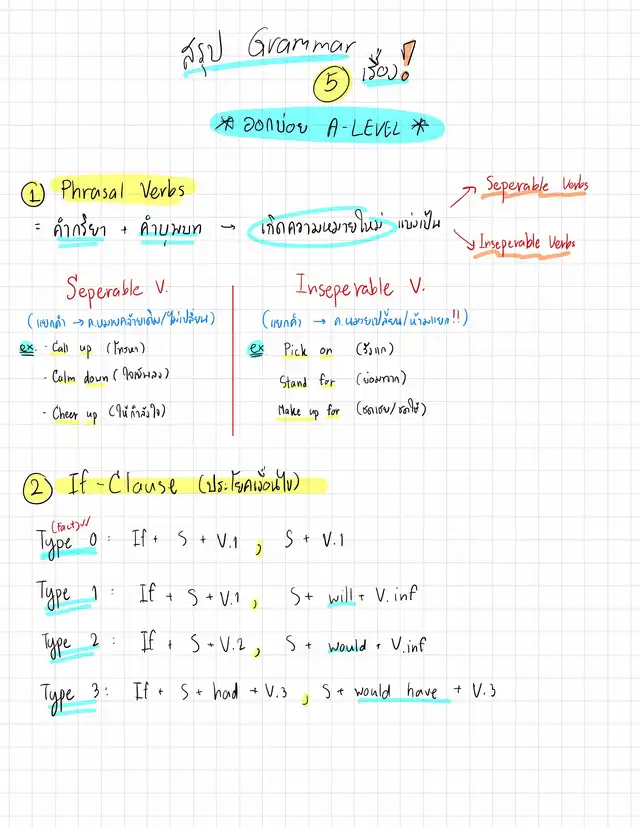 สรุป Grammar
5 เรื่อง!
* ออกบ่อย A-LEVEL *
1 Phrasal Verbs
= คำกริยา + คำบุพบท → เกิดความหมายใหม่ แบ่งเป็น
Seperable Verbs
Inseperable Verbs
Seperable V.
(แยกคำ → ค.หมายคล้ายเดิม/ไม่เปลี่ยน)
ex. - Call up (โทรหา)
- Calm down (ใจเย็นลง)
- Cheer up (ให้กำลังใจ)
Inseperable V.
(แยกคำ → ค.หมายเปลี่ยน/ห้ามแยก!!)
ex Pick on (รังแก)
Stand for (ย่อมาจาก)
Make up for (ชดเชย/ชดใช้)
2 If-Clause (ประโยคเงื่อนไข)
(Fact)✓✓
Type 0: If + S + V.1 , S + V.1
Type 1: If + S + V.1 , S + will + V.inf
Type 2: If + S + V.2 , S + would + V.inf
Type 3: If + S + had + V.3 , S + would have + V.3